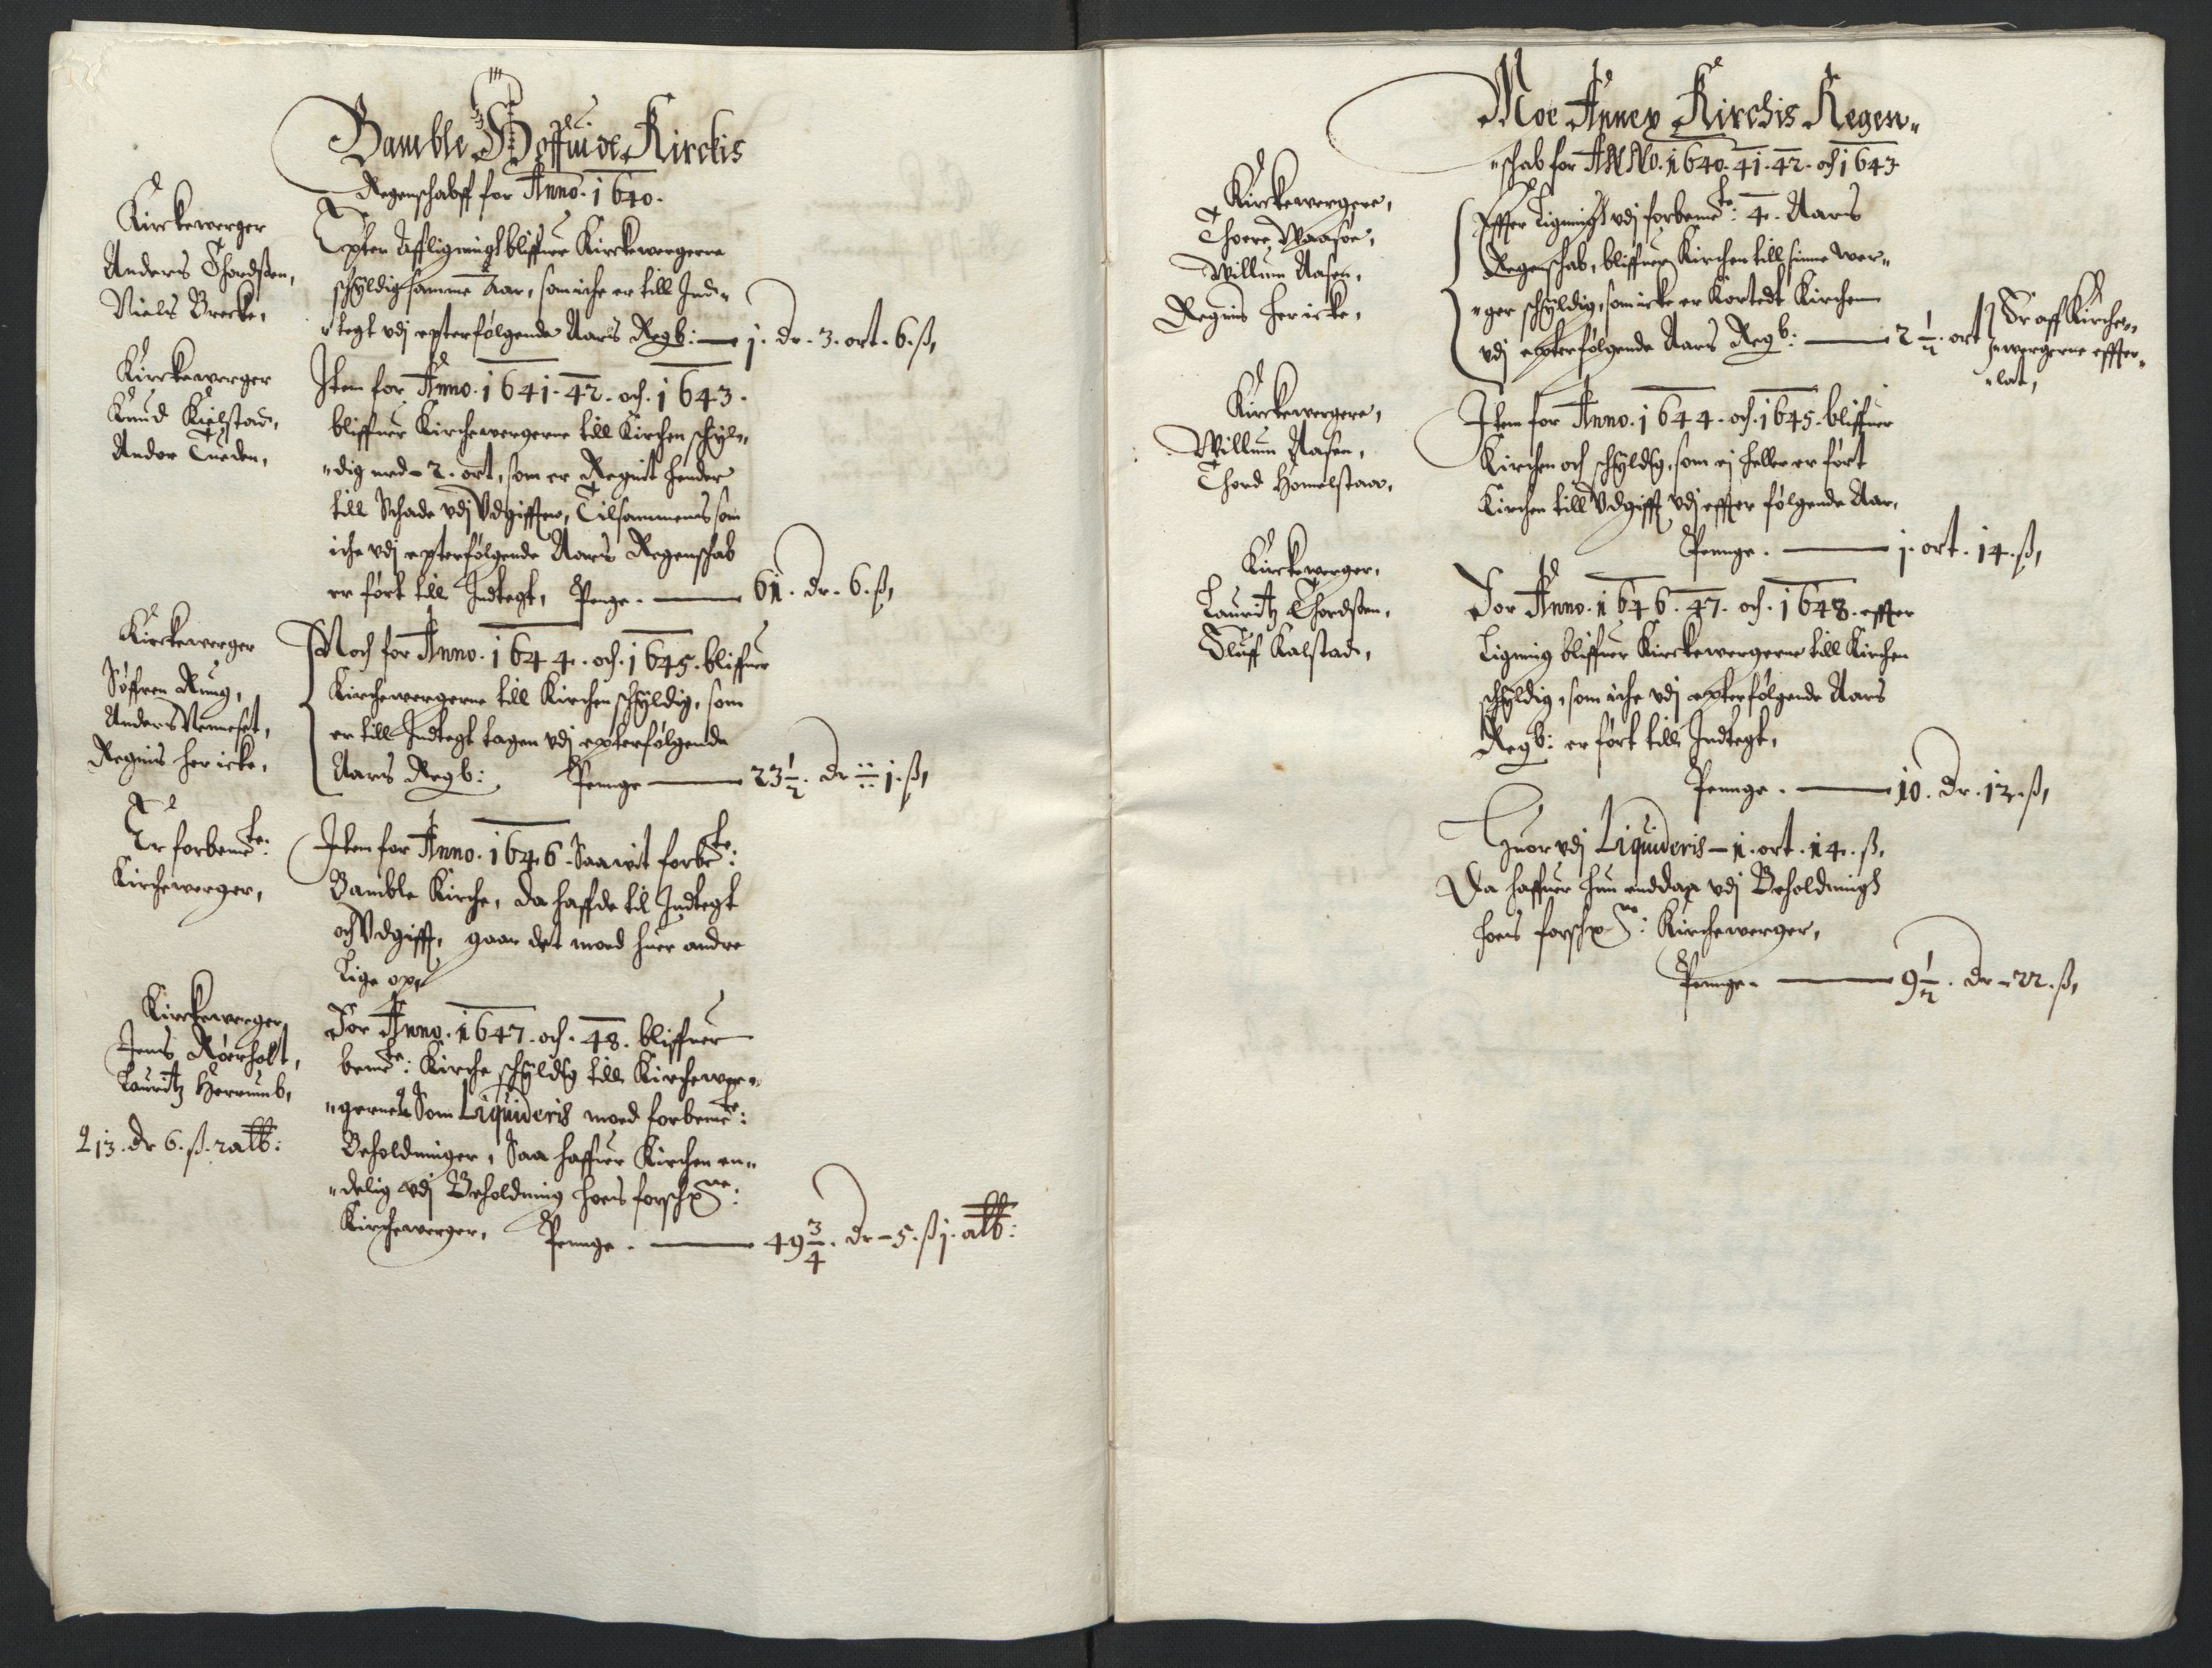 Bamble Hoffuide Kirckis
Regenschabff for Anno. 1640.
Kirckewerger
Anders Thordßen,
Niels Brecke,
Epter Afligningh bliffuer Kirckewergerne
schyldig samme Aar, som iche er till Ind-
tegt vdj epterfølgende Aars Regb: — j. dr. 3. ort. 6. ß,
Kirckewerger
Knud Kielstad,
Andor Tueden,
Item for Anno. 1641. 42. och. 1643.
bliffuer Kirchewergerne till Kirchen schyl-
dig med - 2. ort, som er Regnit hender
till Schade vdj Vdgifften, Tilsammens som
iche vdj epterfølgende Aars Regenschab
er ført till Indtegt, Penge. — 61. dr. 6. ß,
Kirckewerger
Søffren Rung,
Anders Venneset,
Regnis her icke,
Noch for Anno. 1644. och. 1645. bliffuer
Kirchewergerne till Kirchen schyldig, som
er till Indtegt tagen vdj epterfølgende
Aars Regb: Pennge — 23 1/2. dr j. ß,
Er forbemte:
Kirchewerger,
Item for Anno. 1646. Saawit forbte:
Bamble Kirche, da haffde til Indtegt
och Vdgifft, gaar det moed huer andre
Lige op,
Kirckewerger
Jens Røerholt,
Lauritz Herrumb,
213. dr 6. ß. 2 alb:
For Anno. 1647. och. 48. bliffuer
bemte: Kirche schyldig till Kirchewer-
gerne Som Liquideris moed forbemte:
Beholdninger, Saa haffuer Kirchen en-
delig vdj Beholdning hoes forschrne:
Kirchewerger, Pennge. — 49 3/4. dr - 5. ß j. alb:
Moe Annex Kirchis Regen-
schab for ANNo. 1640. 41. 42. och 1643
Kirckewergere,
Thore Waasøe,
Willum Aasen,
Regnis her icke,
Effter Ligningh vdj forbemte: 4. Aars
Regenschab, bliffuer Kirchen till sinne wer-
ger schyldig, som icke er Kortedt Kirchen
vdj epterfølgende Aars Regb: — 2 1/2. ort
Er aff Kirche-
wergerne effter-
lat,
Kirckewergere,
Willum Aasen,
Thord Homelstad,
Item for Anno. 1644. och. 1645. bliffuer
Kirchen och schyldig, som ej heller er ført
Kirchen till Vdgifft vdj effter følgende Aar,
Pennge. — j. ort. 14. ß,
Kirckewerger,
Lauritz Thordßen,
Oluff Kalstad,
For Anno. 1646. 47. och. 1648. effter
Ligning bliffuer Kirckewergerne till Kirchen
schyldig, som iche vdj epterfølgende Aars
Regb: er ført till Indtegt,
Pennge. — 10. dr. 12. ß,
Huor vdj Liquideris - 1. ort. 14. ß,
Da haffuer hun endda vdj Beholdningh
hoes forschrne: Kirchewerger,
Pennge. — 9 1/2. dr - 22. ß,